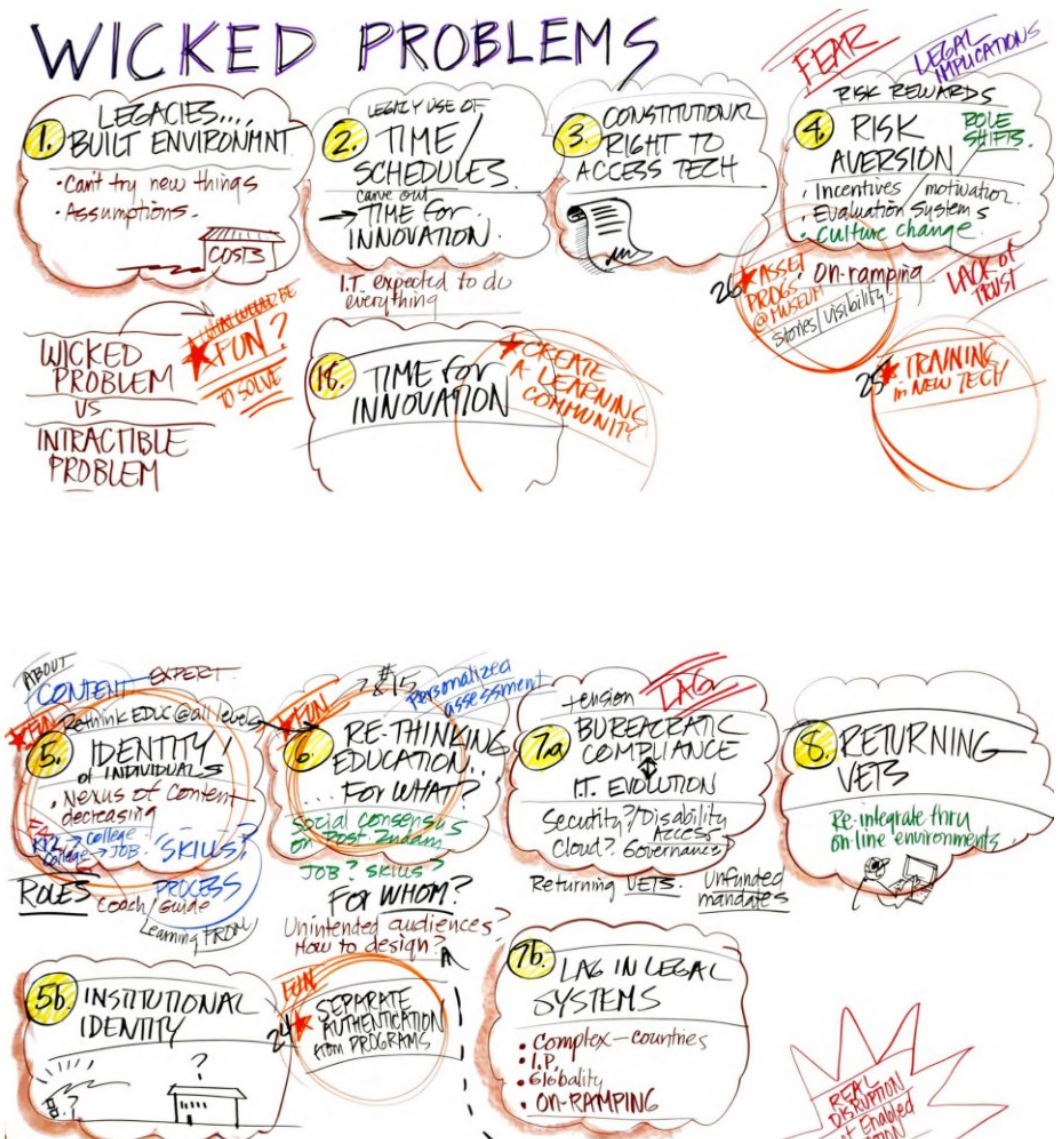 WICKED PROBLEMS
FEAR
LEGAL
IMPLICATIONS
1.
LEGACIES....
BUILT ENVIRONMNT
• Can't try new things
• Assumptions.
COSTS
2.
LEGACY USE OF
TIME/
SCHEDULES
carve out
→ TIME for
INNOVATION.
I.T. expected to do
everything
3.
CONSTITUTIONAL
RIGHT TO
ACCESS TECH
RISK REWARDS
4.
RISK
AVERSION
ROLE
SHIFTS.
• Incentives / motivation.
• Evaluation Systems
• Culture change
• On-ramping
26
ASSET
PROGS
@ MUSEUM
Stories/Visibility.
LACK of
TRUST
25
TRAINING
in NEW TECH
WICKED
PROBLEM
VS
INTRACTIBLE
PROBLEM
FUN?
TO SOLVE
18.
TIME for
INNOVATION
CREATE
A LEARNING
COMMUNITY
ABOUT
CONTENT EXPERT
FUN
Rethink EDUC @ all levels
5.
IDENTITY
of INDIVIDUALS
• Nexus of Content
decreasing
K12 → College
College → JOB. SKILLS?
ROLES
PROCESS
Coach/Guide
Learning FROM
#15
Personalized
assessment
FUN
6.
RE-THINKING
EDUCATION...
... FOR WHAT?
Social consensus
on Post 2ndary
JOB? SKILLS?
FOR WHOM?
Unintended audiences?
How to design?
tension
LAG
7.a
BUREACRATIC
COMPLIANCE
I.T. EVOLUTION
Secutity?/Disability
Access
Cloud? Governance?
Returning VETS.
Unfunded
mandates
8.
RETURNING
VETS
Re-integrate thru
on-line environments
5b.
INSTITUTIONAL
IDENTITY
?
?
FUN
24
SEPARATE
AUTHENTICATION
from PROGRAMS
7b.
LAG IN LEGAL
SYSTEMS
• Complex—countries
• I.P.
• Globality
• ON-RAMPING
REAL
DISRUPTION
Enabled